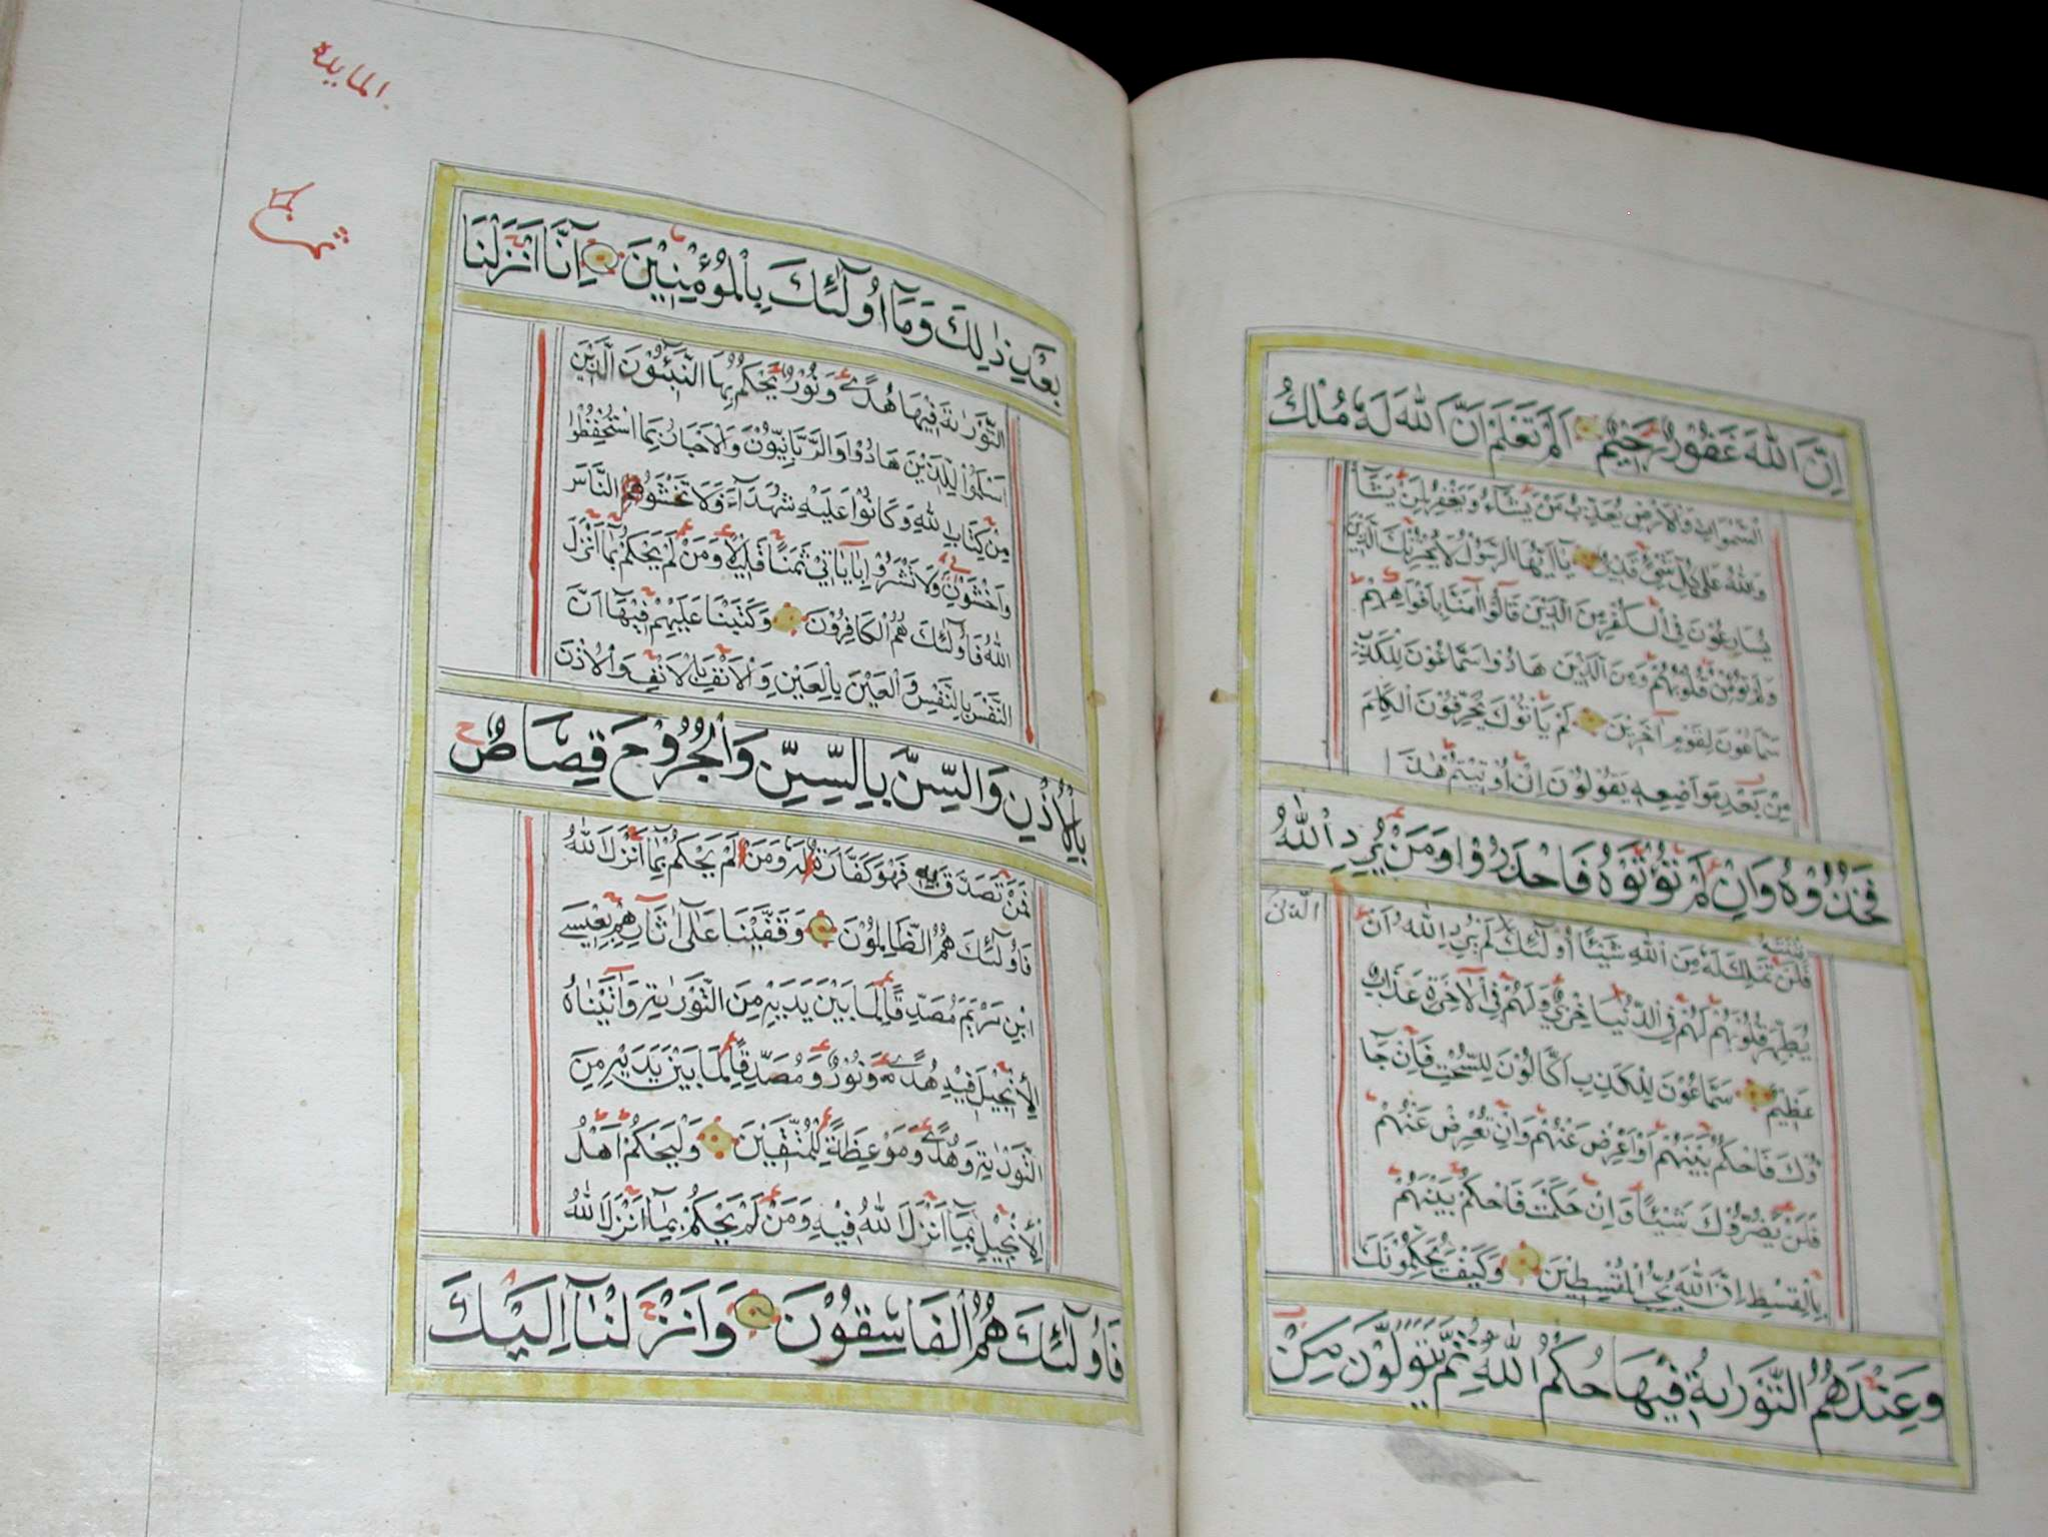 اِنَّ اللهَ غَفُورٌ رَحِيْمٌ اَلَمْ تَعْلَمْ اَنَّ اللهَ لَهُ مُلْكُ
السَّمٰوَاتِ وَالْاَرْضِ يُعَذِّبُ مَنْ يَشَاءُ وَيَغْفِرُ لِمَنْ يَشَآءُ
وَاللهُ عَلٰى كُلِّ شَيْءٍ قَدِيْرٌ يَآاَيُّهَا الرَّسُوْلُ لَا يَحْزُنْكَ الَّذِيْنَ
يُسَارِعُوْنَ فِي الْكُفْرِ مِنَ الَّذِيْنَ قَالُوْا اٰمَنَّا بِاَفْوَاهِهِمْ
وَلَمْ تُؤْمِنْ قُلُوْبُهُمْ وَمِنَ الَّذِيْنَ هَادُوْا سَمَّاعُوْنَ لِلْكَذِبِ
سَمَّاعُوْنَ لِقَوْمٍ اٰخَرِيْنَ لَمْ يَأْتُوْكَ يُحَرِّفُوْنَ الْكَلِمَ
مِنْ بَعْدِ مَوَاضِعِهٖ يَقُوْلُوْنَ اِنْ اُوْتِيْتُمْ هٰذَا
فَخُذُوْهُ وَاِنْ لَمْ تُؤْتَوْهُ فَاحْذَرُوْا وَمَنْ يُرِدِ اللهُ
فِتْنَتَهُ
فَلَنْ تَمْلِكَ لَهُ مِنَ اللهِ شَيْئًا اُولٰٓئِكَ الَّذِيْنَ لَمْ يُرِدِ اللهُ اَنْ
يُطَهِّرَ قُلُوْبَهُمْ لَهُمْ فِي الدُّنْيَا خِزْيٌ وَلَهُمْ فِي الْاٰخِرَةِ عَذَابٌ
عَظِيْمٌ سَمَّاعُوْنَ لِلْكَذِبِ اَكَّالُوْنَ لِلسُّحْتِ فَاِنْ جَآ
ؤُكَ فَاحْكُمْ بَيْنَهُمْ اَوْ اَعْرِضْ عَنْهُمْ وَاِنْ تُعْرِضْ عَنْهُمْ
فَلَنْ يَضُرُّوْكَ شَيْئًا وَاِنْ حَكَمْتَ فَاحْكُمْ بَيْنَهُمْ
بِالْقِسْطِ اِنَّ اللهَ يُحِبُّ الْمُقْسِطِيْنَ وَكَيْفَ يُحَكِّمُوْنَكَ
وَعِنْدَهُمُ التَّوْرٰىةُ فِيْهَا حُكْمُ اللهِ ثُمَّ يَتَوَلَّوْنَ مِنْ
المايدة
بَعْدِ ذٰلِكَ وَمَآ اُولٰٓئِكَ بِالْمُؤْمِنِيْنَ اِنَّآ اَنْزَلْنَا
التَّوْرٰىةَ فِيْهَا هُدًى وَنُوْرٌ يَحْكُمُ بِهَا النَّبِيُّوْنَ الَّذِيْنَ
اَسْلَمُوْا لِلَّذِيْنَ هَادُوْا وَالرَّبَّانِيُّوْنَ وَالْاَحْبَارُ بِمَا اسْتُحْفِظُوْا
مِنْ كِتَابِ اللهِ وَكَانُوْا عَلَيْهِ شُهَدَآءَ فَلَا تَخْشَوُا النَّاسَ
وَاخْشَوْنِ وَلَا تَشْتَرُوْا بِاٰيَاتِيْ ثَمَنًا قَلِيْلًا وَمَنْ لَمْ يَحْكُمْ بِمَآ اَنْزَلَ
اللهُ فَاُولٰٓئِكَ هُمُ الْكَافِرُوْنَ وَكَتَبْنَا عَلَيْهِمْ فِيْهَآ اَنَّ
النَّفْسَ بِالنَّفْسِ وَالْعَيْنَ بِالْعَيْنِ وَالْاَنْفَ بِالْاَنْفِ وَالْاُذُنَ
بِالْاُذُنِ وَالسِّنَّ بِالسِّنِّ وَالْجُرُوْحَ قِصَاصٌ
فَمَنْ تَصَدَّقَ بِهٖ فَهُوَ كَفَّارَةٌ لَهُ وَمَنْ لَمْ يَحْكُمْ بِمَآ اَنْزَلَ اللهُ
فَاُولٰٓئِكَ هُمُ الظَّالِمُوْنَ وَقَفَّيْنَا عَلٰٓى اٰثَارِهِمْ بِعِيْسَى
ابْنِ مَرْيَمَ مُصَدِّقًا لِمَا بَيْنَ يَدَيْهِ مِنَ التَّوْرٰىةِ وَاٰتَيْنَاهُ
الْاِنْجِيْلَ فِيْهِ هُدًى وَنُوْرٌ وَمُصَدِّقًا لِمَا بَيْنَ يَدَيْهِ مِنَ
التَّوْرٰىةِ وَهُدًى وَمَوْعِظَةً لِلْمُتَّقِيْنَ وَلْيَحْكُمْ اَهْلُ
الْاِنْجِيْلِ بِمَآ اَنْزَلَ اللهُ فِيْهِ وَمَنْ لَمْ يَحْكُمْ بِمَآ اَنْزَلَ اللهُ
فَاُولٰٓئِكَ هُمُ الْفَاسِقُوْنَ وَاَنْزَلْنَآ اِلَيْكَ